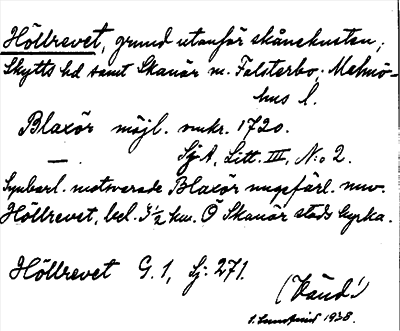 Höllrevet, grund utanför skånekusten;
Skytts hd samt Skanör m. Falsterbo; Malmö-
hus l.
Blaxör möjl. omkr. 1720.
— SjA, Litt. III, N:o 2.
Synbarl. motsvarade Blaxör ungefärl. nuv.
Höllrevet, bel. 3½ km. Ö Skanör stads kyrka.
Höllrevet G. 1, Sj: 271.
(Vänd!)
1938.